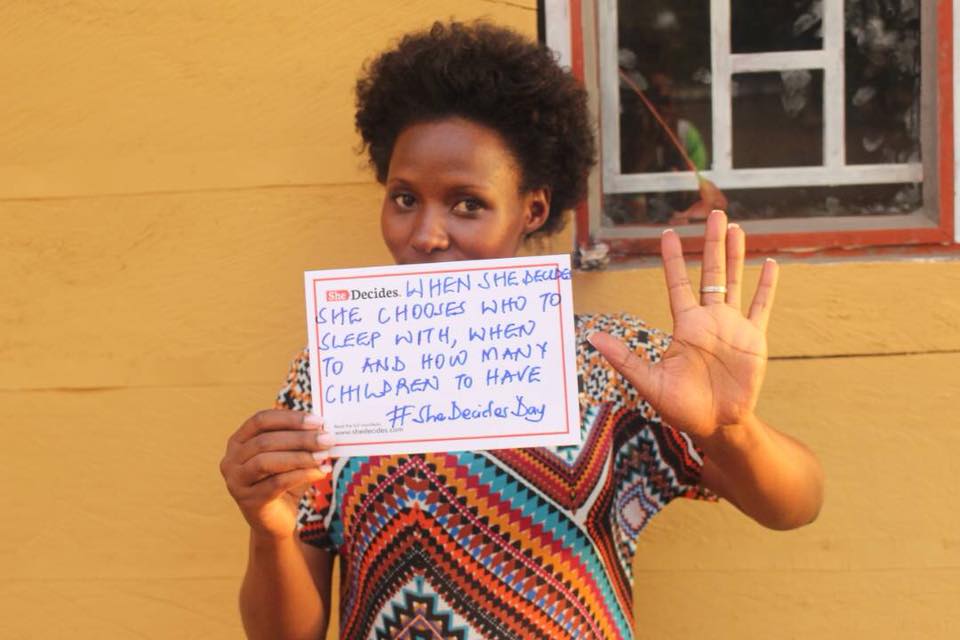 She Decides. WHEN SHE DECIDES
SHE CHOOSES WHO TO
SLEEP WITH, WHEN
TO AND HOW MANY
CHILDREN TO HAVE
#SheDecidesDay
Read the full manifesto
www.shedecides.com